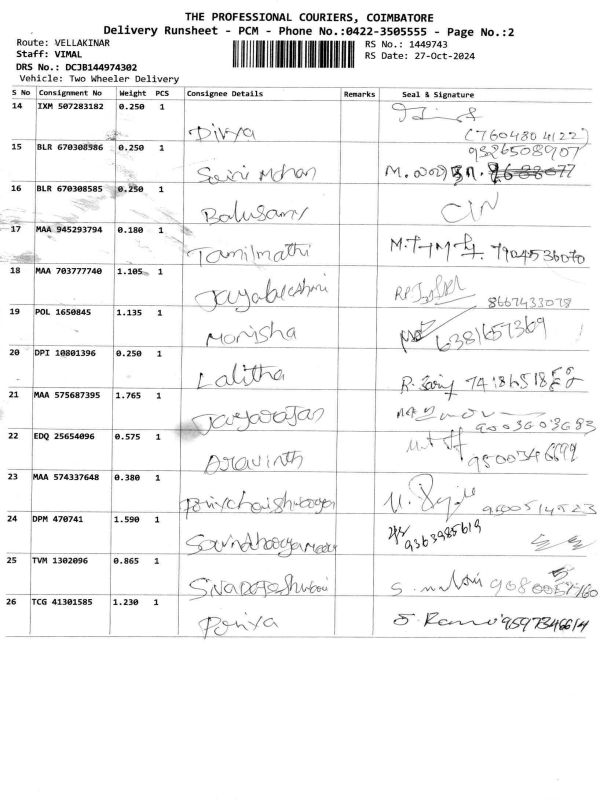 THE PROFESSIONAL COURIERS, COIMBATORE
Delivery Runsheet - PCM - Phone No.:0422-3505555 - Page No.:2
Route: VELLAKINAR
RS No.: 1449743
Staff: VIMAL
RS Date: 27-Oct-2024
DRS No.: DCJB144974302
Vehicle: Two Wheeler Delivery
S No Consignment No Weight PCS Consignee Details Remarks Seal & Signature
14 IXM 507283182 0.250 1
Divya (7604804122)
15 BLR 670308986 0.250 1 9326508907
Mohan M.
16 BLR 670308585 0.250 1
Balusamy
17 MAA 945293794 0.180 1
Tamilmathi 7904536070
18 MAA 703777740 1.105 1
8667433078
19 POL 1650845 1.135 1
Monisha 6381657369
20 DPI 10801396 0.250 1
Lalitha R.
21 MAA 575687395 1.765 1
Jayarajan 9003603683
22 EDQ 25654096 0.575 1
Aravinth
23 MAA 574337648 0.380 1
24 DPM 470741 1.590 1
9363985619
25 TVM 1302096 0.865 1
S.
26 TCG 41301585 1.230 1
Priya 9597346614